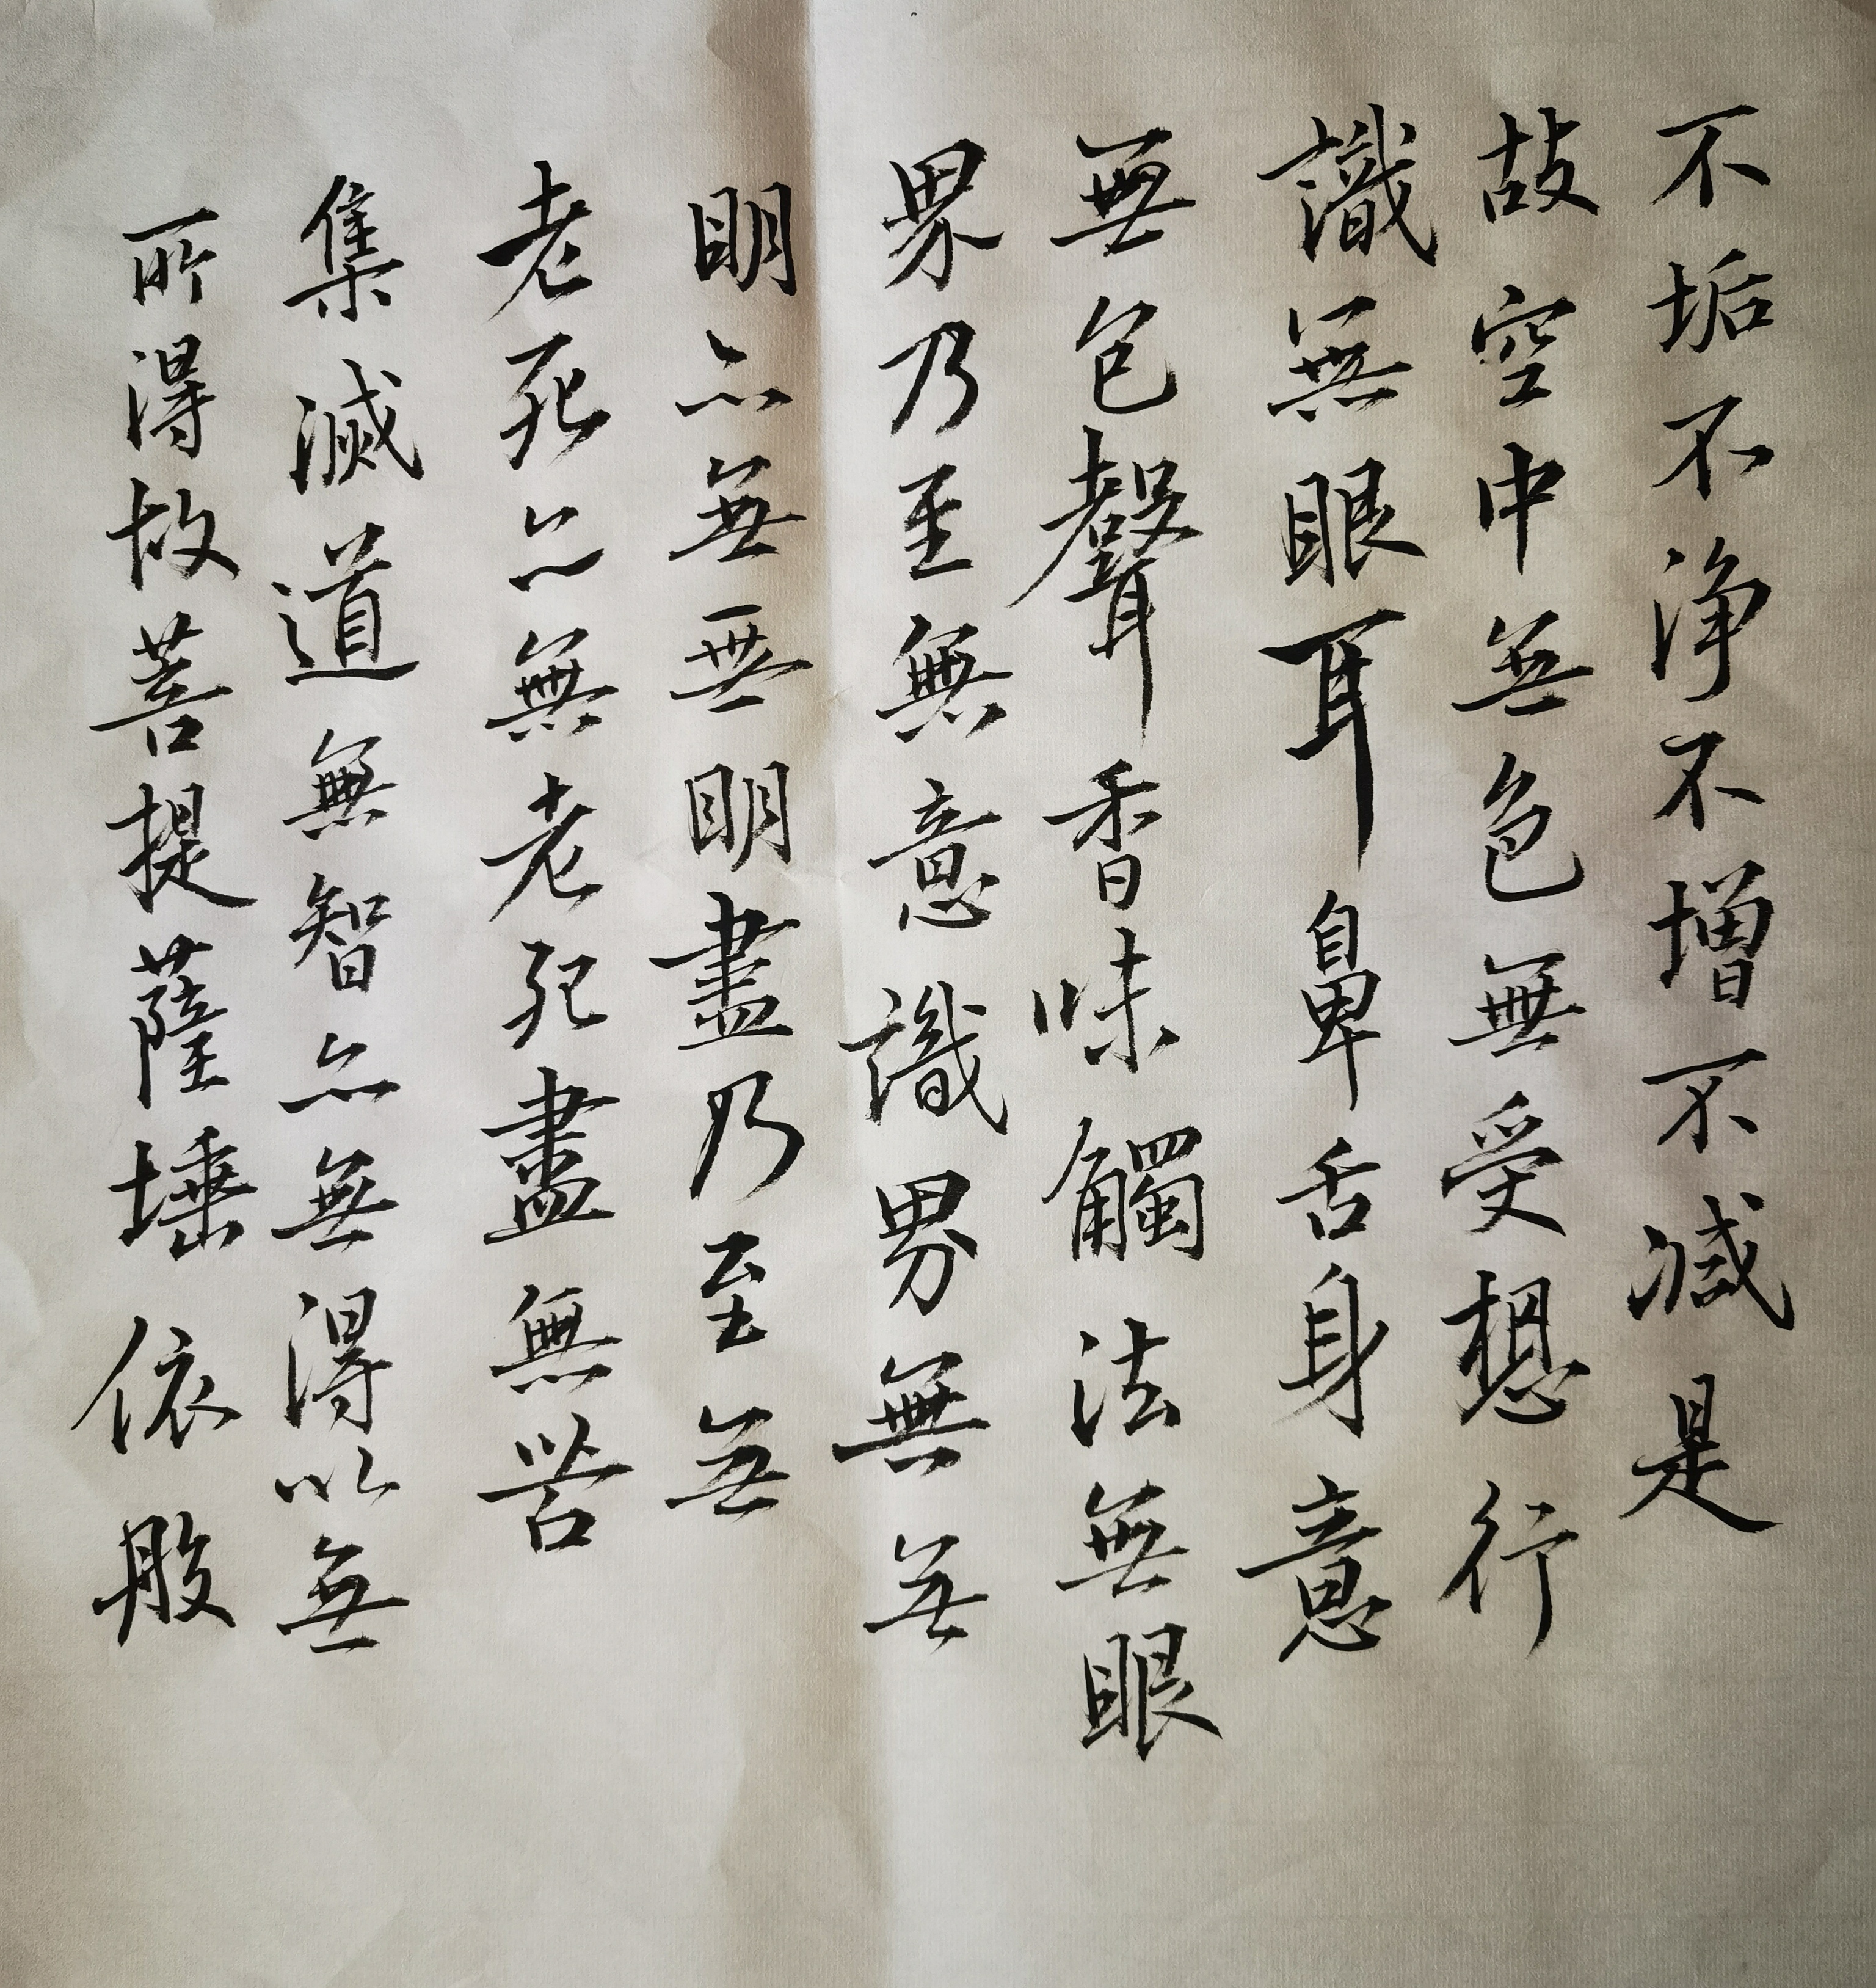 不垢不净不增不減是
故空中無色無受想行
識無眼耳鼻舌身意
無色聲香味觸法無眼
界乃至無意識界無無
明亦無無明盡乃至無
老死亦無老死盡無苦
集滅道無智亦無得以無
所得故菩提薩埵依般